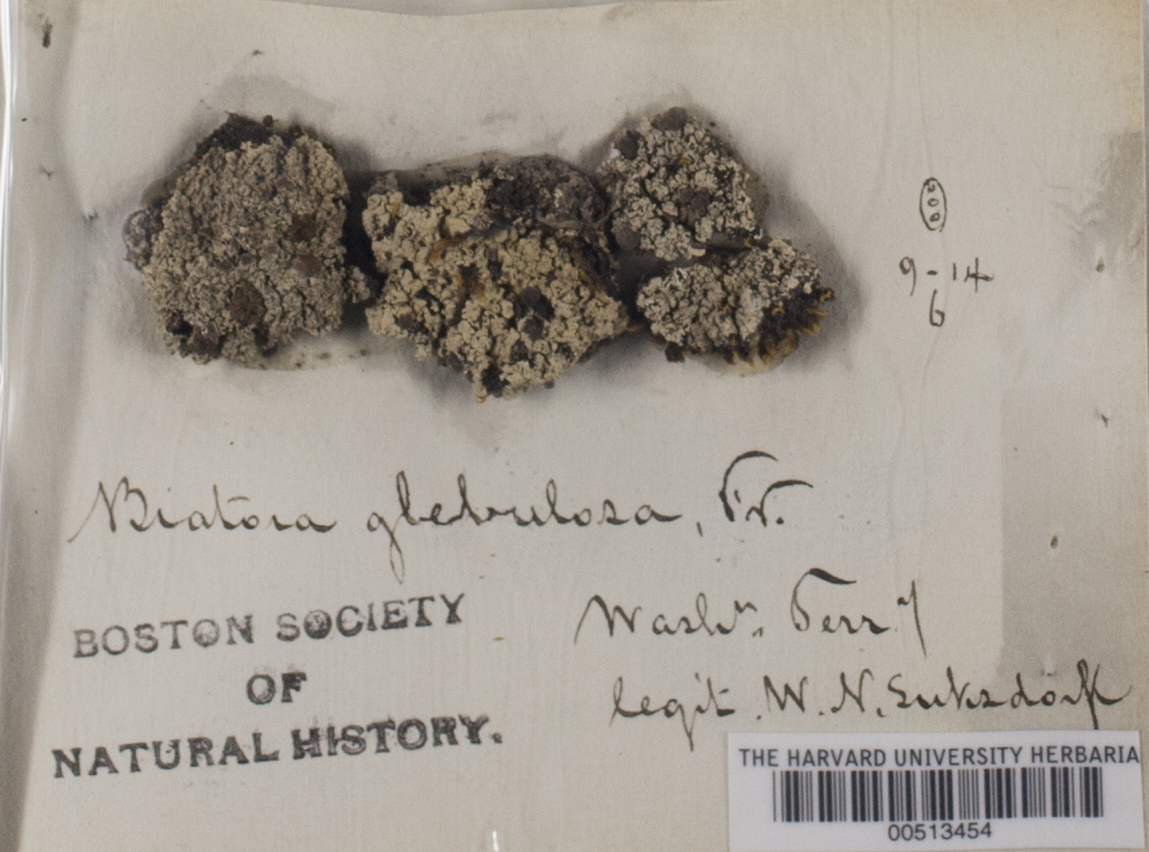 9-14
6
Biatora glebulosa, Fr.
BOSTON SOCIETY
OF
NATURAL HISTORY.
Washn. Terry
legit. W. N. Suksdorf
THE HARVARD UNIVERSITY HERBARIA
00513454